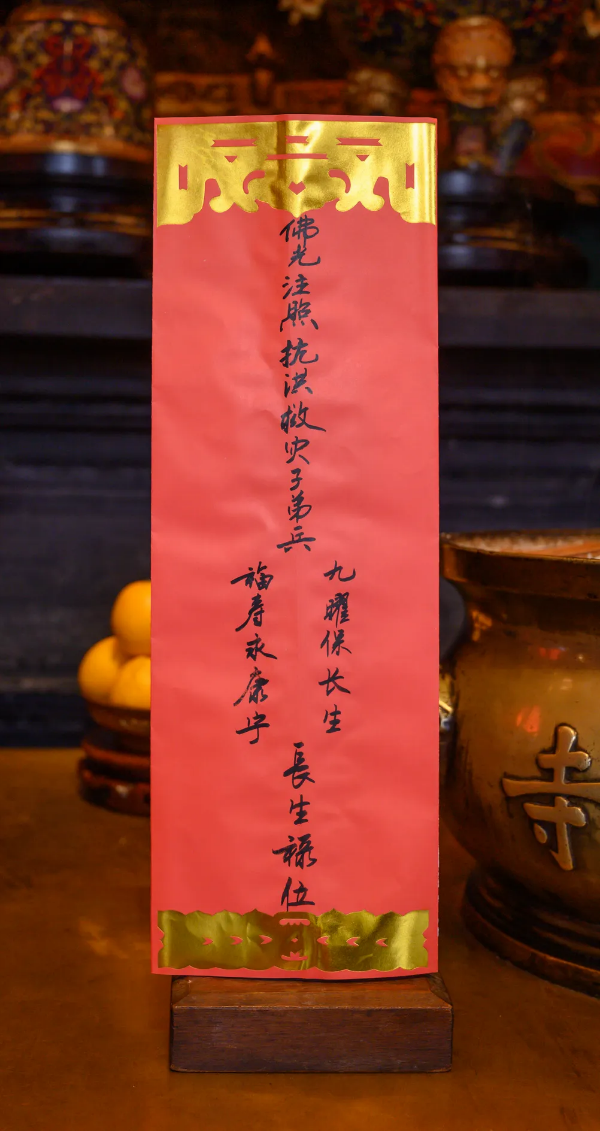 佛光注照抗洪救灾子弟兵
九曜保长生
福寿永康宁
長生禄位
寺